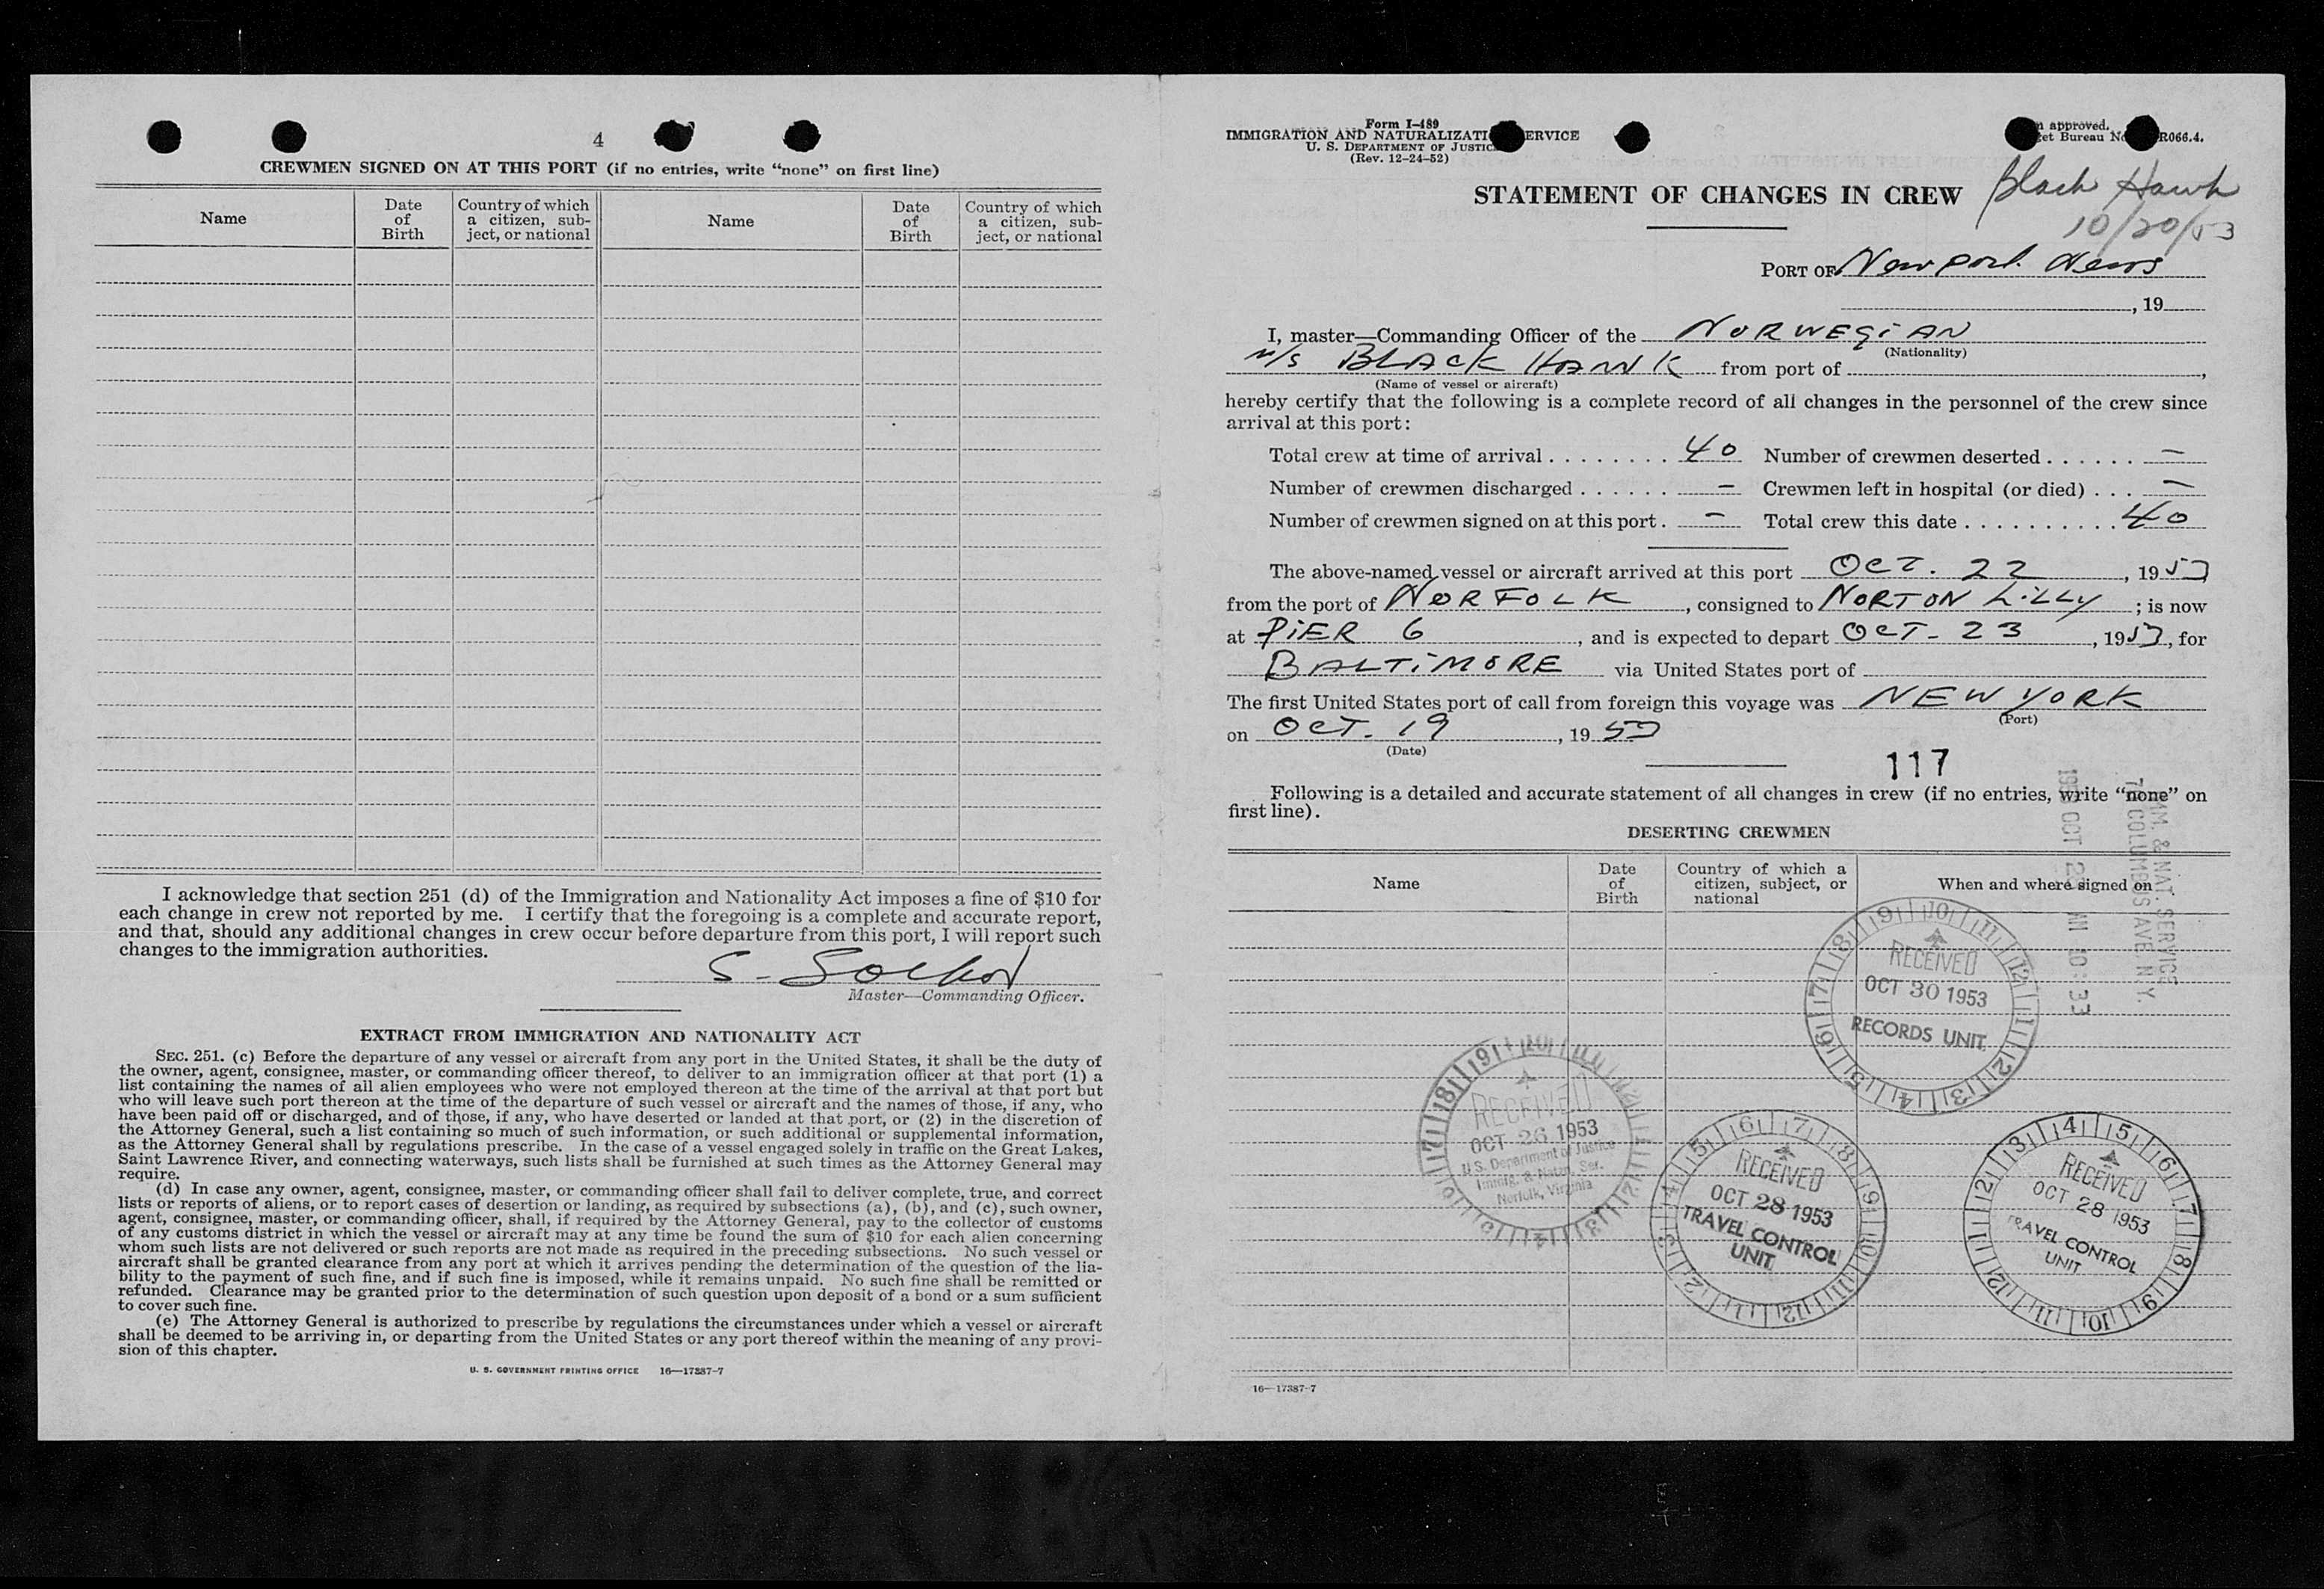 4
CREWMEN SIGNED ON AT THIS PORT (if no entries, write “none” on first line)
Name
Date of Birth
Country of which a citizen, sub-ject, or national
Name
Date of Birth
Country of which a citizen, sub-ject, or national
I acknowledge that section 251 (d) of the Immigration and Nationality Act imposes a fine of $10 for
each change in crew not reported by me. I certify that the foregoing is a complete and accurate report,
and that, should any additional changes in crew occur before departure from this port, I will report such
changes to the immigration authorities.
S.
Master—Commanding Officer.
EXTRACT FROM IMMIGRATION AND NATIONALITY ACT
SEC. 251. (c) Before the departure of any vessel or aircraft from any port in the United States, it shall be the duty of
the owner, agent, consignee, master, or commanding officer thereof, to deliver to an immigration officer at that port (1) a
list containing the names of all alien employees who were not employed thereon at the time of the arrival at that port but
who will leave such port thereon at the time of the departure of such vessel or aircraft and the names of those, if any, who
have been paid off or discharged, and of those, if any, who have deserted or landed at that port, or (2) in the discretion of
the Attorney General, such a list containing so much of such information, or such additional or supplemental information,
as the Attorney General shall by regulations prescribe. In the case of a vessel engaged solely in traffic on the Great Lakes,
Saint Lawrence River, and connecting waterways, such lists shall be furnished at such times as the Attorney General may
require.
(d) In case any owner, agent, consignee, master, or commanding officer shall fail to deliver complete, true, and correct
lists or reports of aliens, or to report cases of desertion or landing, as required by subsections (a), (b), and (c), such owner,
agent, consignee, master, or commanding officer, shall, if required by the Attorney General, pay to the collector of customs
of any customs district in which the vessel or aircraft may at any time be found the sum of $10 for each alien concerning
whom such lists are not delivered or such reports are not made as required in the preceding subsections. No such vessel or
aircraft shall be granted clearance from any port at which it arrives pending the determination of the question of the lia-
bility to the payment of such fine, and if such fine is imposed, while it remains unpaid. No such fine shall be remitted or
refunded. Clearance may be granted prior to the determination of such question upon deposit of a bond or a sum sufficient
to cover such fine.
(e) The Attorney General is authorized to prescribe by regulations the circumstances under which a vessel or aircraft
shall be deemed to be arriving in, or departing from the United States or any port thereof within the meaning of any provi-
sion of this chapter.
U. S. GOVERNMENT PRINTING OFFICE 16—17387-7
Form I-489
IMMIGRATION AND NATURALIZATI ERVICE
U. S. DEPARTMENT OF JUSTIC
(Rev. 12-24-52)
approved.
et Bureau No R066.4.
STATEMENT OF CHANGES IN CREW
Black Hawk
10/20/53
PORT OF Newport News
, 19
I, master—Commanding Officer of the NORWEGIAN
(Nationality)
M/S BLACK HAWK from port of ,
(Name of vessel or aircraft)
hereby certify that the following is a complete record of all changes in the personnel of the crew since
arrival at this port:
Total crew at time of arrival . . . . . . . . 40 Number of crewmen deserted . . . . . . —
Number of crewmen discharged . . . . . . — Crewmen left in hospital (or died) . . . —
Number of crewmen signed on at this port . — Total crew this date . . . . . . . . . . 40
The above-named vessel or aircraft arrived at this port OCT. 22, 1953
from the port of NORFOLK, consigned to NORTON LILLY; is now
at PIER 6, and is expected to depart OCT- 23, 1953, for
BALTIMORE via United States port of
The first United States port of call from foreign this voyage was NEW YORK
(Port)
on OCT. 19, 1953
(Date)
117
Following is a detailed and accurate statement of all changes in crew (if no entries, write “none” on
first line).
DESERTING CREWMEN
Name
Date of Birth
Country of which a citizen, subject, or national
When and where signed on
IMM. & NAT. SERVICE
70 COLUMBUS AVE. N.Y.
OCT 10:33
RECEIVED
OCT 30 1953
RECORDS UNIT
RECEIVED
OCT 26 1953
U.S. Department of Justice
Immig. & Natzn. Ser.
Norfolk, Virginia
RECEIVED
OCT 28 1953
TRAVEL CONTROL
UNIT
RECEIVED
OCT 28 1953
TRAVEL CONTROL
UNIT
16—17387-7